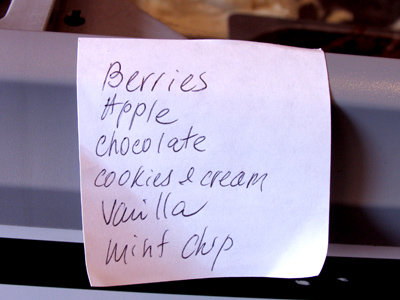 Berries
Apple
chocolate
cookies & cream
Vanilla
mint chip